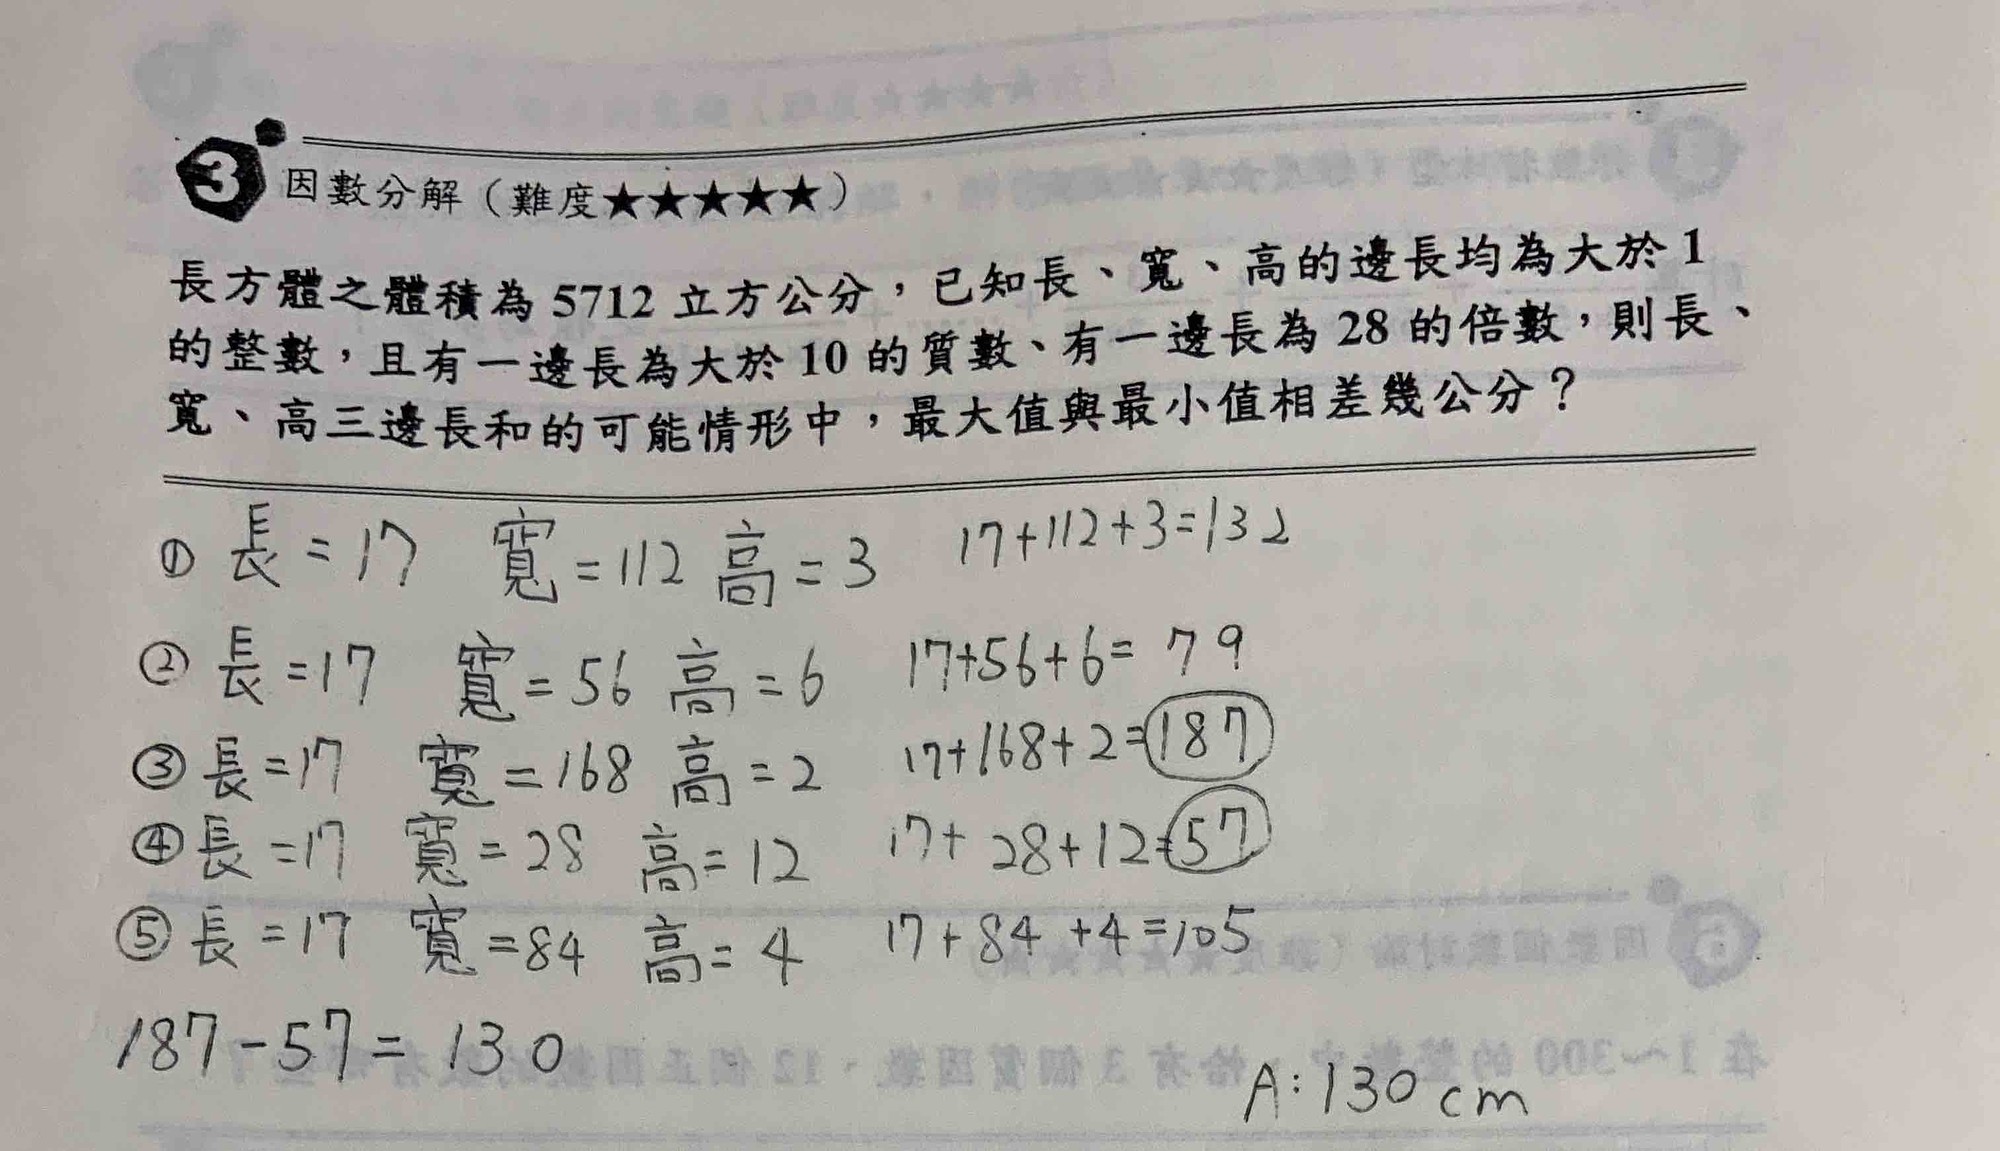 3 因數分解（難度★★★★★）
長方體之體積為 5712 立方公分，已知長、寬、高的邊長均為大於 1
的整數，且有一邊長為大於 10 的質數、有一邊長為 28 的倍數，則長、
寬、高三邊長和的可能情形中，最大值與最小值相差幾公分？
① 長=17 寬=112 高=3 17+112+3=132
② 長=17 寬=56 高=6 17+56+6=79
③ 長=17 寬=168 高=2 17+168+2=187
④ 長=17 寬=28 高=12 17+28+12=57
⑤ 長=17 寬=84 高=4 17+84+4=105
187-57=130
A:130cm